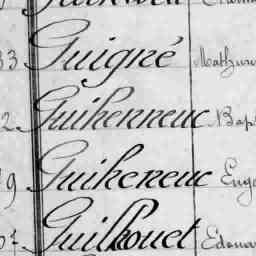 33 Guigné Mathur
2 Guihenneuc Bap
9 Guiheneuc Eug
Guillouet Edoua